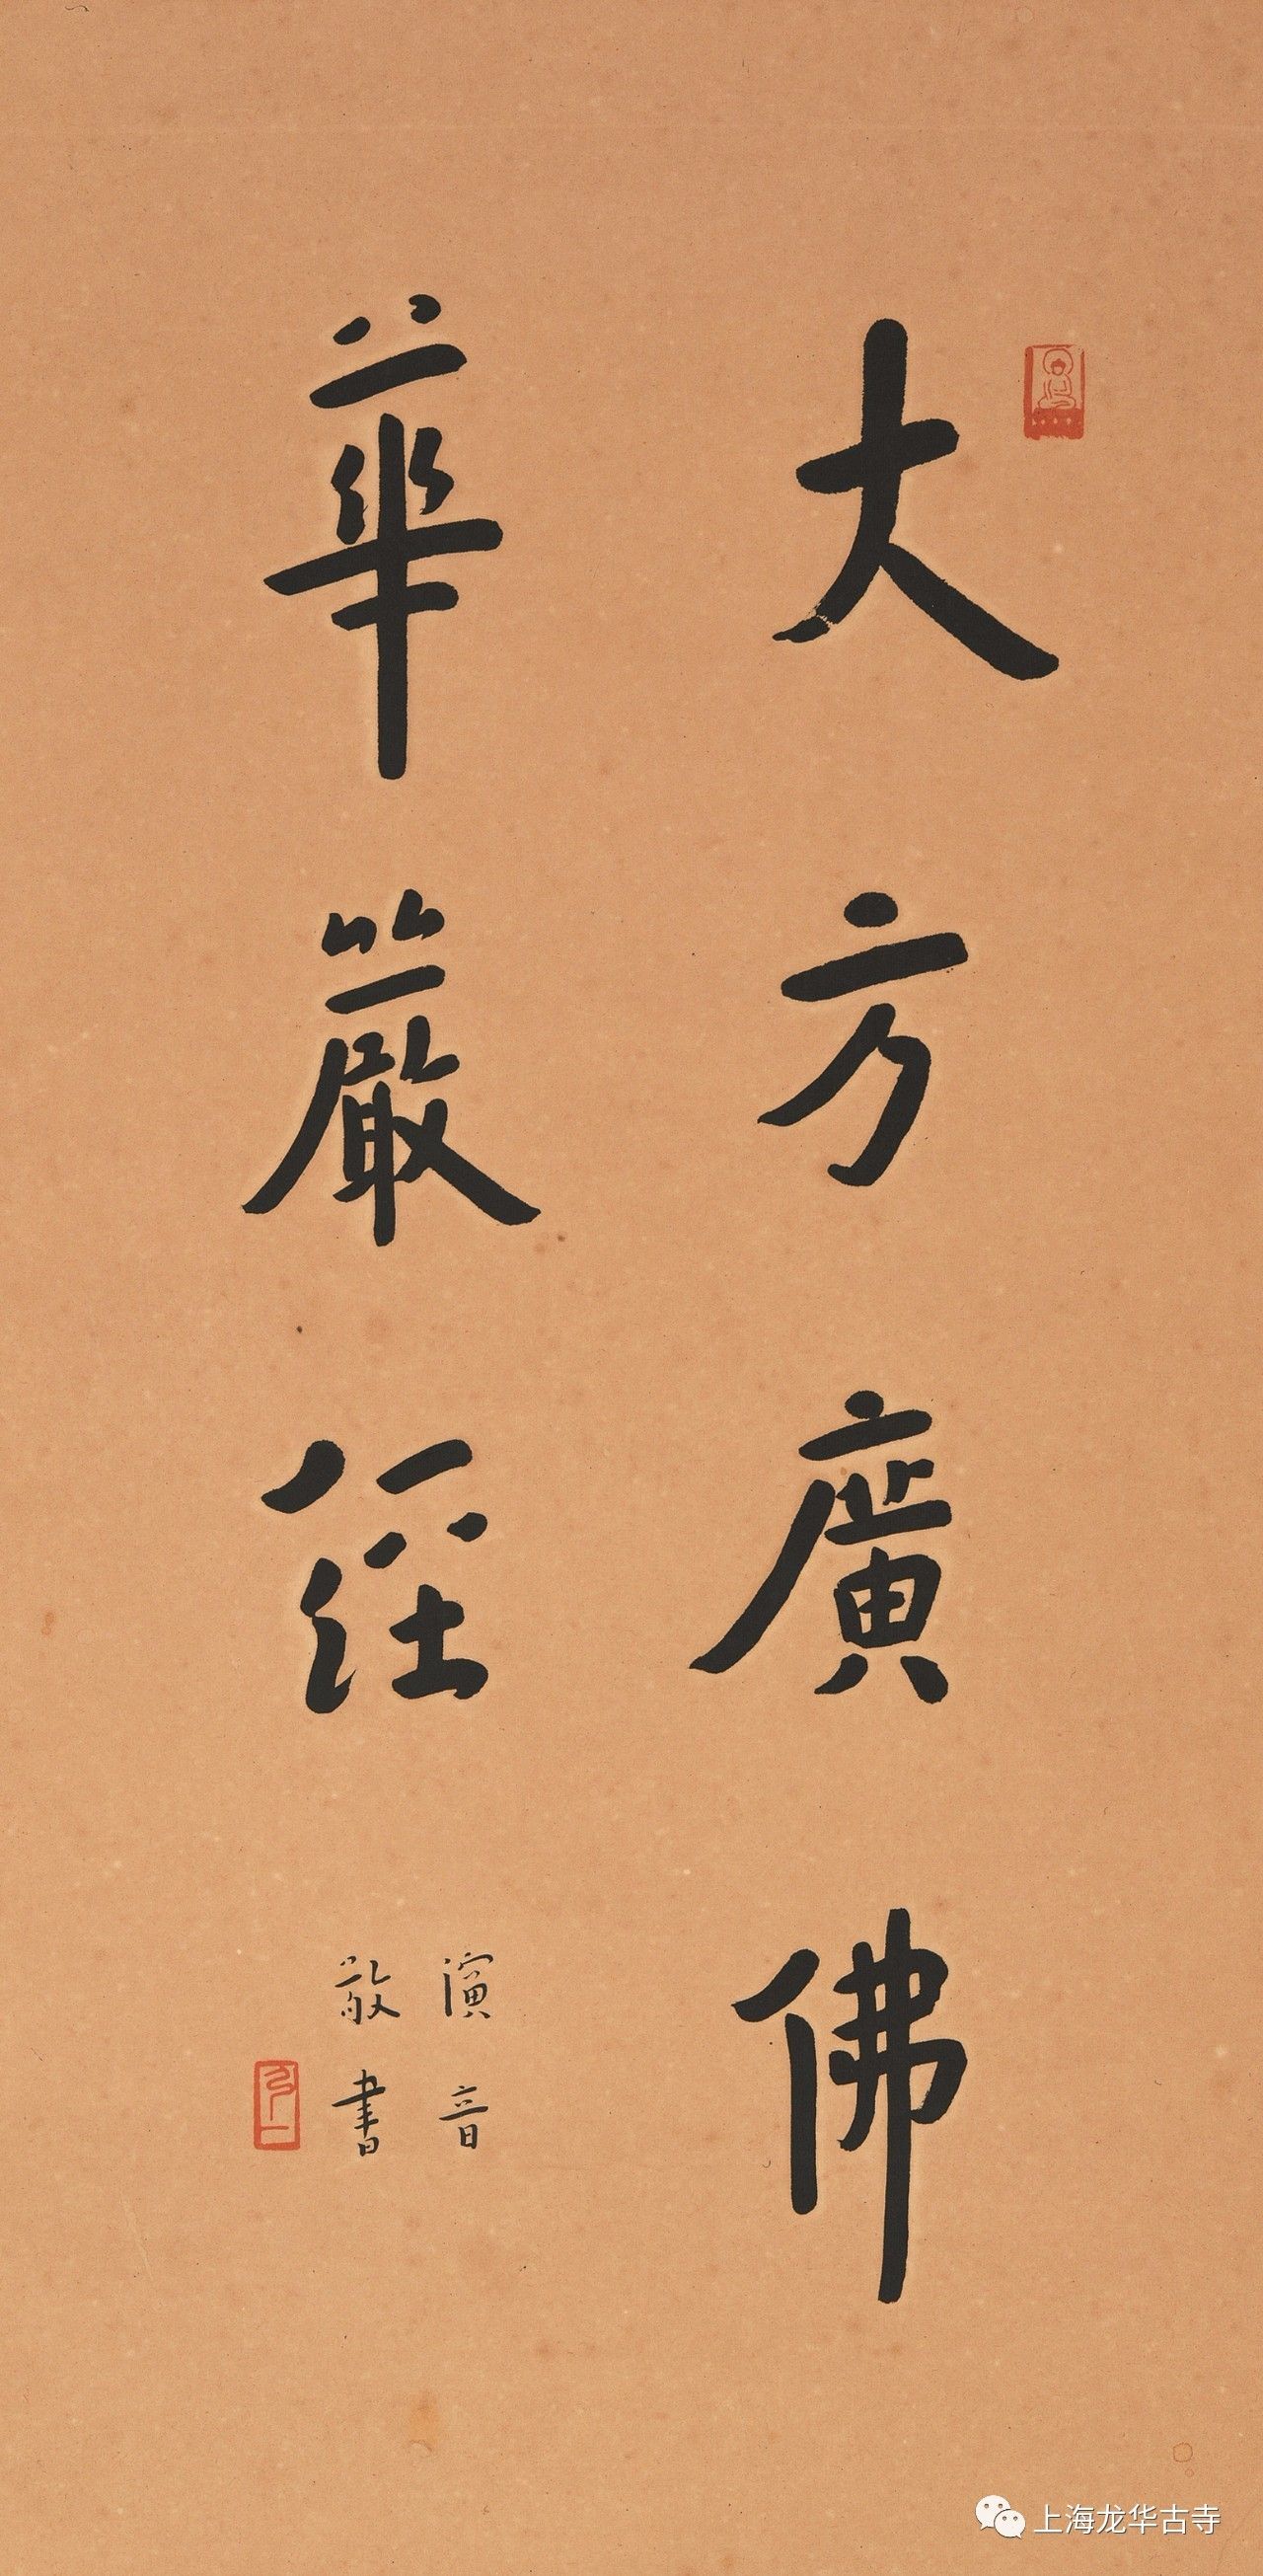 大方廣佛
華嚴經
演音
敬書
弘一
上海龙华古寺